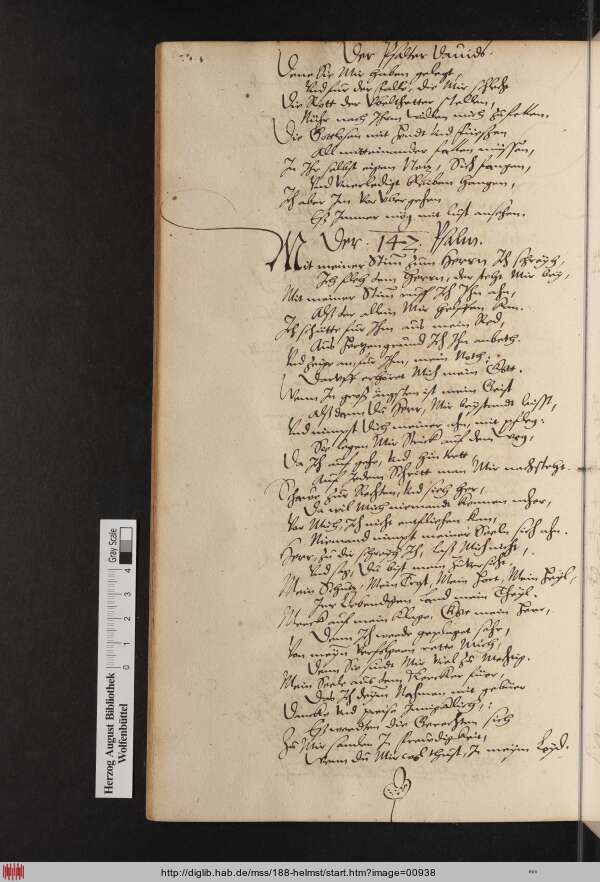 Der Psalter Dauids.
Denn sie Mir haben gelegt,
Vnd für der falle, die Mir
Die Rott der Vbelthetter stellen,
Mühe nach Ihrem willen mich zu fellen.
Die Gottlosen mit Hendt Vnd füessen
All mitteinander fallen müssen,
In Ihr selbst eigen Netz, Sich fangen,
Vnd bleiben hangen,
Ich aber Im Vorüber gehen
Es Immer mög mit lust ansehen.
Der 142 Psalm.
Mit meiner Stim zum Herrn Ich schreyh,
Ich fleh dem Herrn, der steht Mir bey,
Mit meiner Stim ruff Ich Ihn ahn,
Alß der allein Mir helffen kan.
Ich schütte für Ihm aus mein Red,
Aus Hertzengrund Ich Ihn anbeth.
Vnd zeige an für Ihm, mein Noth,
Daruff erhöret Mich mein Gott.
Wenn In groß ängsten ist mein Geist
Alß dann Du Herr, Mir beystandt leist,
Vnd nimpst Dich meiner ahn, mit pfleg:
Sie legen Mir Strick auf dem weg,
Da Ich auf gehe, Vnd hin trett
Auf Jedem Schritt man Mir nachstelht.
Schawe zur Rechten, Vnd sieh her,
Da wil Mich niemandt kennen mher,
Vor Mich, Ich nicht entfliehen kan,
Niemand nimpt meiner Seele sich ahn.
Herr, zu dir schreyh Ich, laß Mich nicht,
Vnd sag, Du bist mein Zuversicht,
Mein Schutz, Mein Trost, Mein Hort, Mein Heyl,
Im Lebendigen Land mein Theyl.
Merck auf mein Klage, Gott mein Herr,
Denn Ich werde geplaget sehr,
Von meyn Verfolgern rette Mich,
Denn Sie sindt Mir viel zu Mechtig.
Mein Seele aus dem Kercker führ,
Das Ich deym Nahmen mit gebüer
Dancke Vnd preise Innigklich,
Es werden die Gerechten sich
Zu Mir samlen In frewdigkeit,
Wenn du Mir wol thust, In meym Leyd.
Herzog August Bibliothek
Wolfenbüttel
Gray Scale
0 1 2 3 4
http://diglib.hab.de/mss/188-helmst/start.htm?image=00938